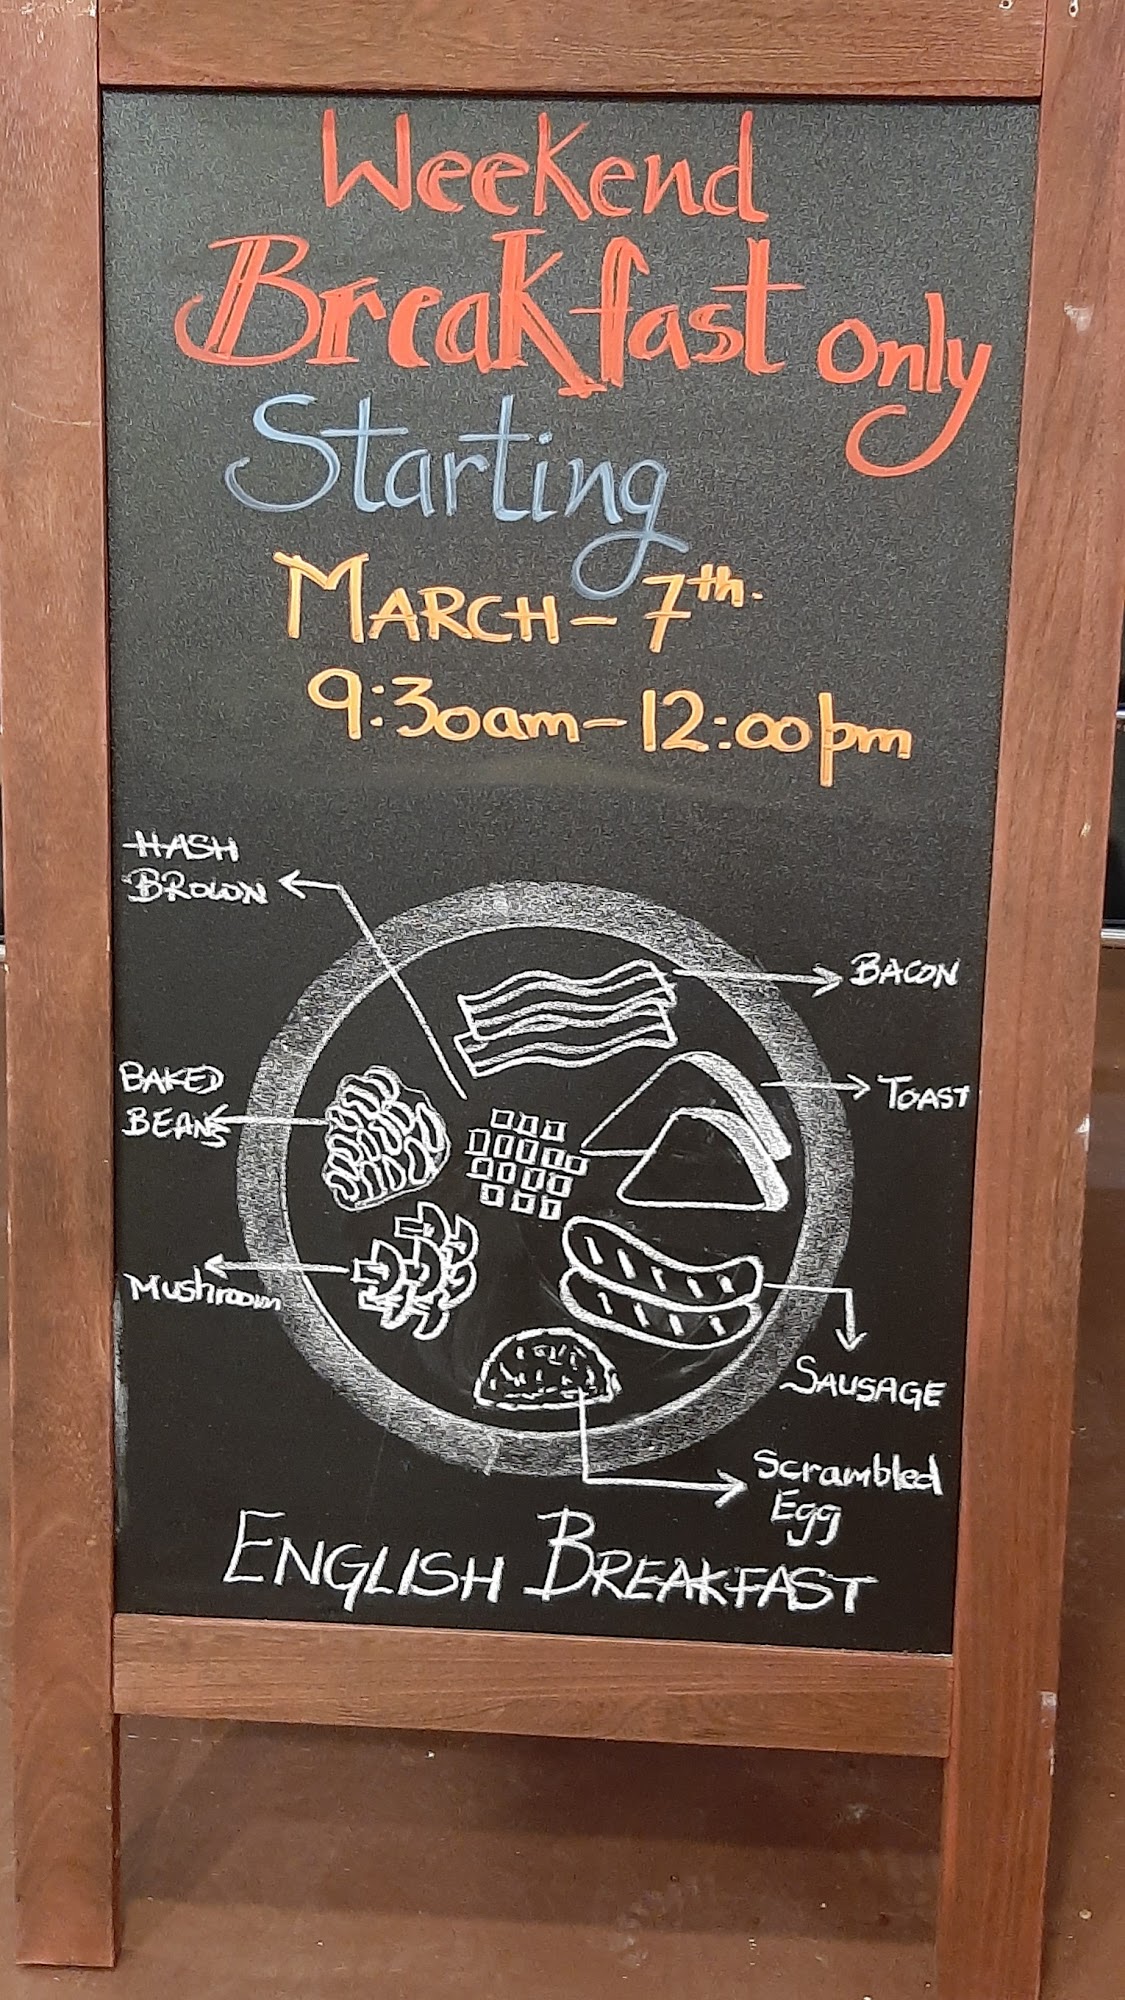 Weekend
Breakfast only
Starting
MARCH - 7th.
9:30am - 12:00pm
HASH
BROWN
BACON
BAKED
BEANS
TOAST
Mushroom
SAUSAGE
Scrambled
Egg
ENGLISH BREAKFAST